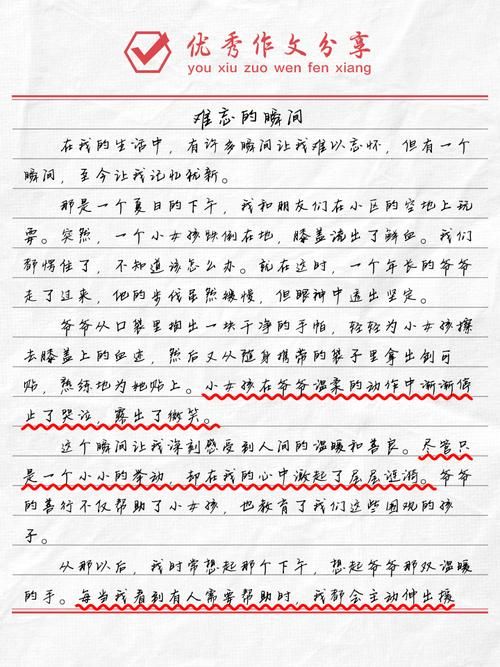 优秀作文分享
you xiu zuo wen fen xiang
难忘的瞬间
在我的生活中，有许多瞬间让我难以忘怀，但有一个
瞬间，至今让我记忆犹新。
那是一个夏日的下午，我和朋友们在小区的空地上玩
耍。突然，一个小女孩跌倒在地，膝盖流出了鲜血。我们
都愣住了，不知道该怎么办。就在这时，一个年长的爷爷
走了过来，他的步伐虽然缓慢，但眼神中透出坚定。
爷爷从口袋里掏出一块干净的手帕，轻轻为小女孩擦
去膝盖上的血迹，然后又从随身携带的袋子里拿出创可
贴，熟练地为她贴上。小女孩在爷爷温柔的动作中渐渐停
止了哭泣，露出了微笑。
这个瞬间让我深刻感受到人间的温暖和善良。尽管只
是一个小小的举动，却在我的心中激起了层层涟漪。爷爷
的善行不仅帮助了小女孩，也教育了我们这些围观的孩
子。
从那以后，我时常想起那个下午，想起爷爷那双温暖
的手。每当我看到有人需要帮助时，我都会主动伸出援